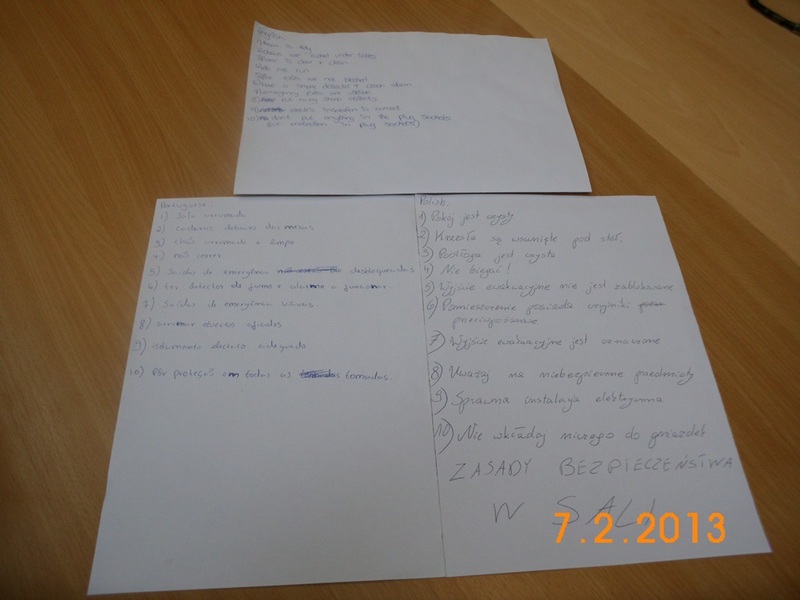 English
Room is tidy
under tables
Floor is clear + clean
not run
exits are not blocked
Have a smoke detector + clear alarm
Emergency exits are visible
put away sharp objects
electric insulation is correct
10) don't put anything in the plug sockets
(put protection in plug sockets)
Portuguese
1) Sala arrumada
2) cadeiras debaixo das mesas
3) chão arrumado e limpo
4) não correr
5) Saidas de emergência desbloqueadas
6) ter detector de fumo e alarme a funcionar.
7) Saidas de emergência visiveis.
8) arrumar objetos afiados
9) electrico adequado
10) Pôr proteção em todas as tomadas.
Polish
1) Pokój jest czysty
2) Krzesła są wsunięte pod stół.
3) Podłoga jest czysta
4) Nie biegać!
5) Wyjście ewakuacyjne nie jest zablokowane
6) Pomieszczenie posiada czujniki
przeciwpożarowe
7) Wyjście ewakuacyjne jest oznaczone
8) Uważaj na niebezpieczne przedmioty
9) Sprawna instalacja elektryczna
10) Nie wkładaj niczego do gniazdek
ZASADY BEZPIECZEŃSTWA
W SALI
7.2.2013